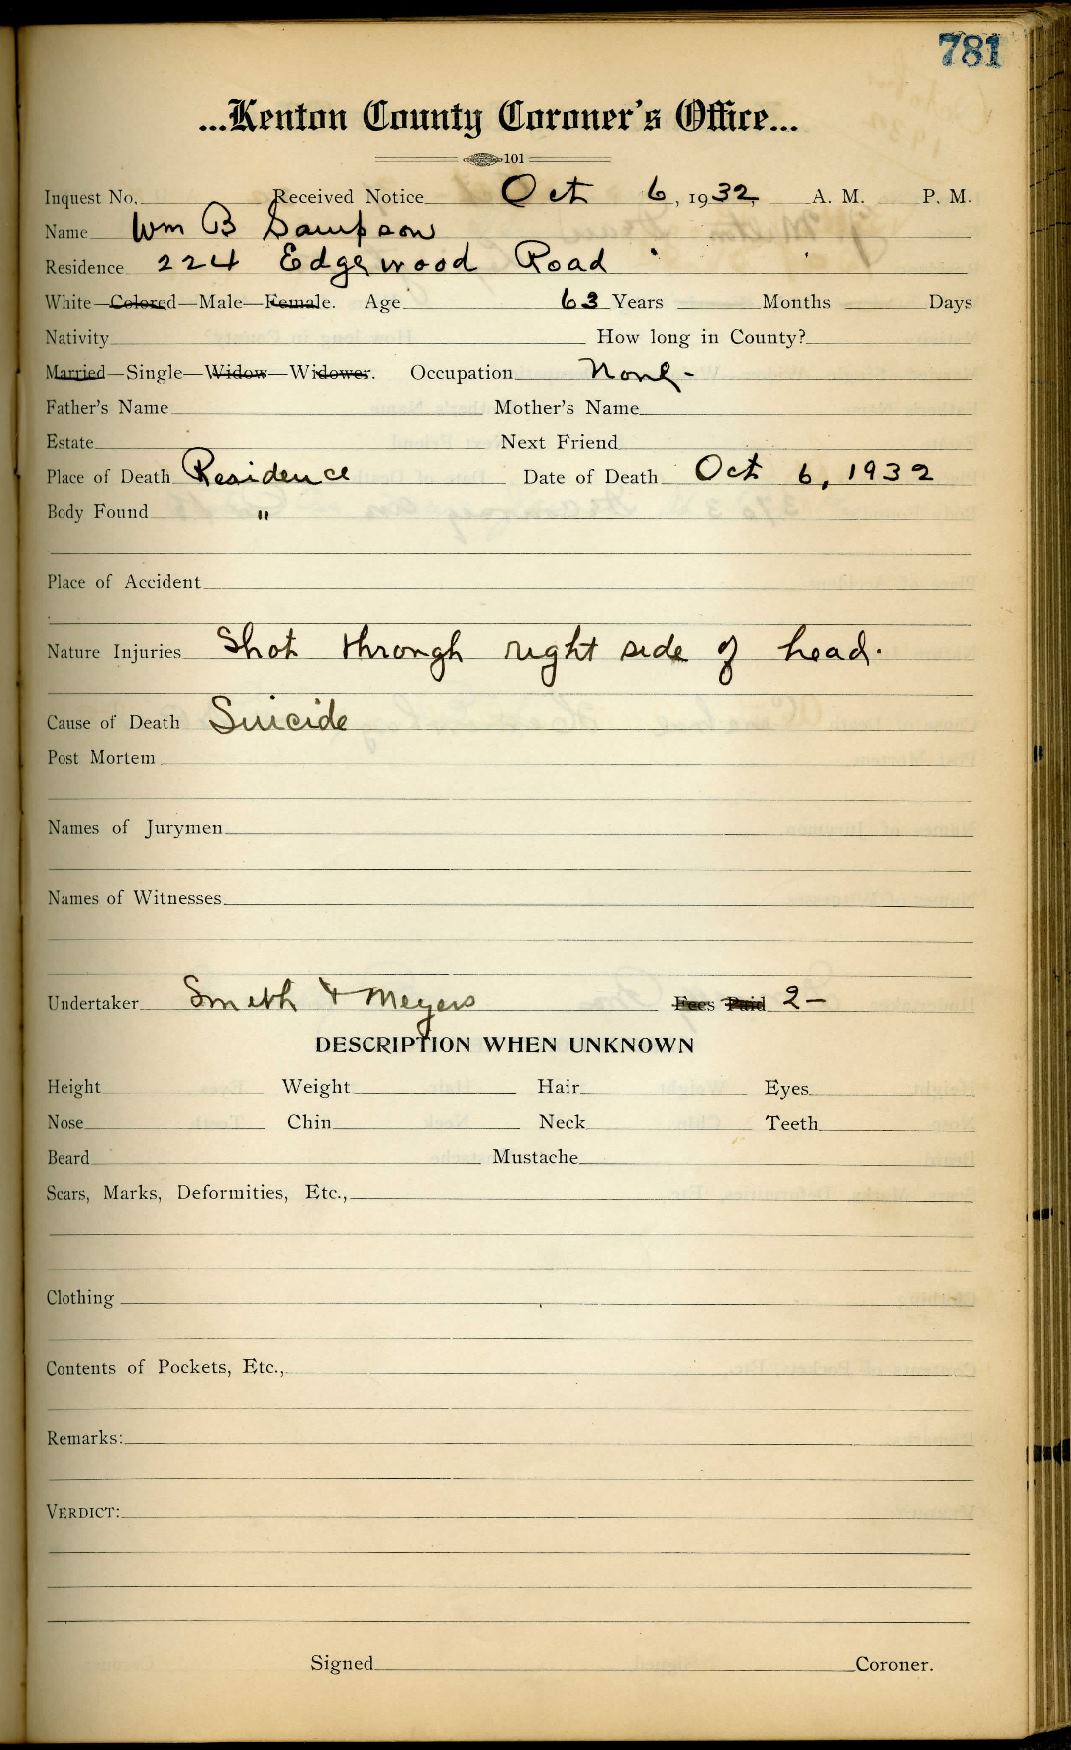 781
...Kenton County Coroner's Office...
101
Inquest No. Received Notice Oct 6, 1932, A. M. P. M.
Name Wm B Sampson
Residence 224 Edgewood Road
White—Colored—Male—Female. Age 63 Years Months Days
Nativity How long in County?
Married—Single—Widow—Widower. Occupation None-
Father's Name Mother's Name
Estate Next Friend
Place of Death Residence Date of Death Oct 6, 1932
Body Found "
Place of Accident
Nature Injuries Shot through right side of head.
Cause of Death Suicide
Post Mortem
Names of Jurymen
Names of Witnesses
Undertaker Smith & Meyers Fees Paid 2—
DESCRIPTION WHEN UNKNOWN
Height Weight Hair Eyes
Nose Chin Neck Teeth
Beard Mustache
Scars, Marks, Deformities, Etc.,
Clothing
Contents of Pockets, Etc.,
Remarks:
VERDICT:
Signed Coroner.